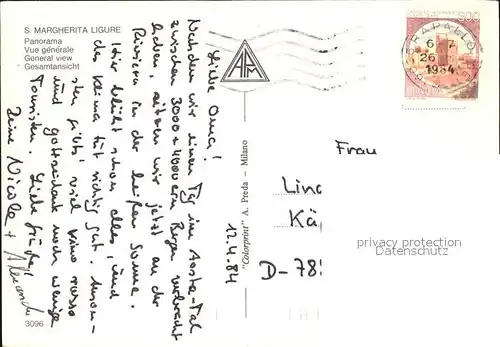 S. MARGHERITA LIGURE
Panorama
Vue générale
General view
Gesamtansicht
Liebe Oma!
Nachdem wir einen Tag im Aosta-Tal
zwischen 3000 + 4000ern Regen verbracht
haben, sitzen wir jetzt an der
Riviera in der heißen Sonne.
Hier blüht schon alles, und
das Klima tut richtig gut. Ansonsten
gibts viel vino rosso
und gottseidank noch wenige
Touristen. Liebe Grüße,
Deine Nicole +
3096
"Colorprint" A. Preda - Milano
12.4.84
RAPALLO
26
1984
500
Frau
Lin
Kä
D-78
privacy protection
Datenschutz